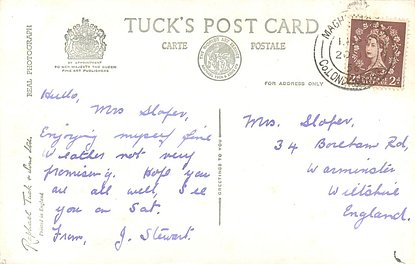 TUCK'S POST CARD
CARTE POSTALE
BY APPOINTMENT
TO HER MAJESTY THE QUEEN
FINE ART PUBLISHERS
REAL PHOTOGRAPH
Raphael Tuck & Sons Ltd
Printed in England
GREETINGS TO YOU
FOR ADDRESS ONLY
MAGH
Co. LONDON
2D
Hello,
Mrs Sloper,
Enjoying myself fine
Weather not very
promising. Hope you
are all well, See
you on Sat.
From, J. Stewart.
Mrs. Sloper,
34 Boreham Rd,
Warminster
Wiltshire
England.